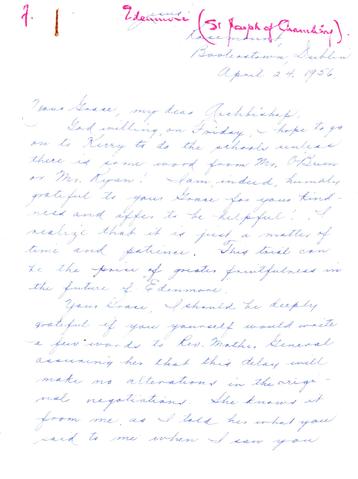 7. Edenmore (St Joseph of Chambéry)
Rosemount
Booterstown, Dublin
April 24, 1956
Your Grace, my dear Archbishop,
God willing, on Friday, I hope to go
on to Kerry to do the schools unless
there is some word from Mr. O'Brien
or Mr. Ryan! I am, indeed, humbly
grateful to your Grace for your kind-
ness and offer to be helpful! I
realize that it is just a matter of
time and patience. This trial can
be the price of greater fruitfulness in
the future of Edenmore.
Your Grace, I should be deeply
grateful if you yourself would write
a few words to Rev. Mother General
assuring her that this delay will
make no alterations in the orig-
nal negotiations. She knows it
from me, as I told her what you
said to me when I saw you